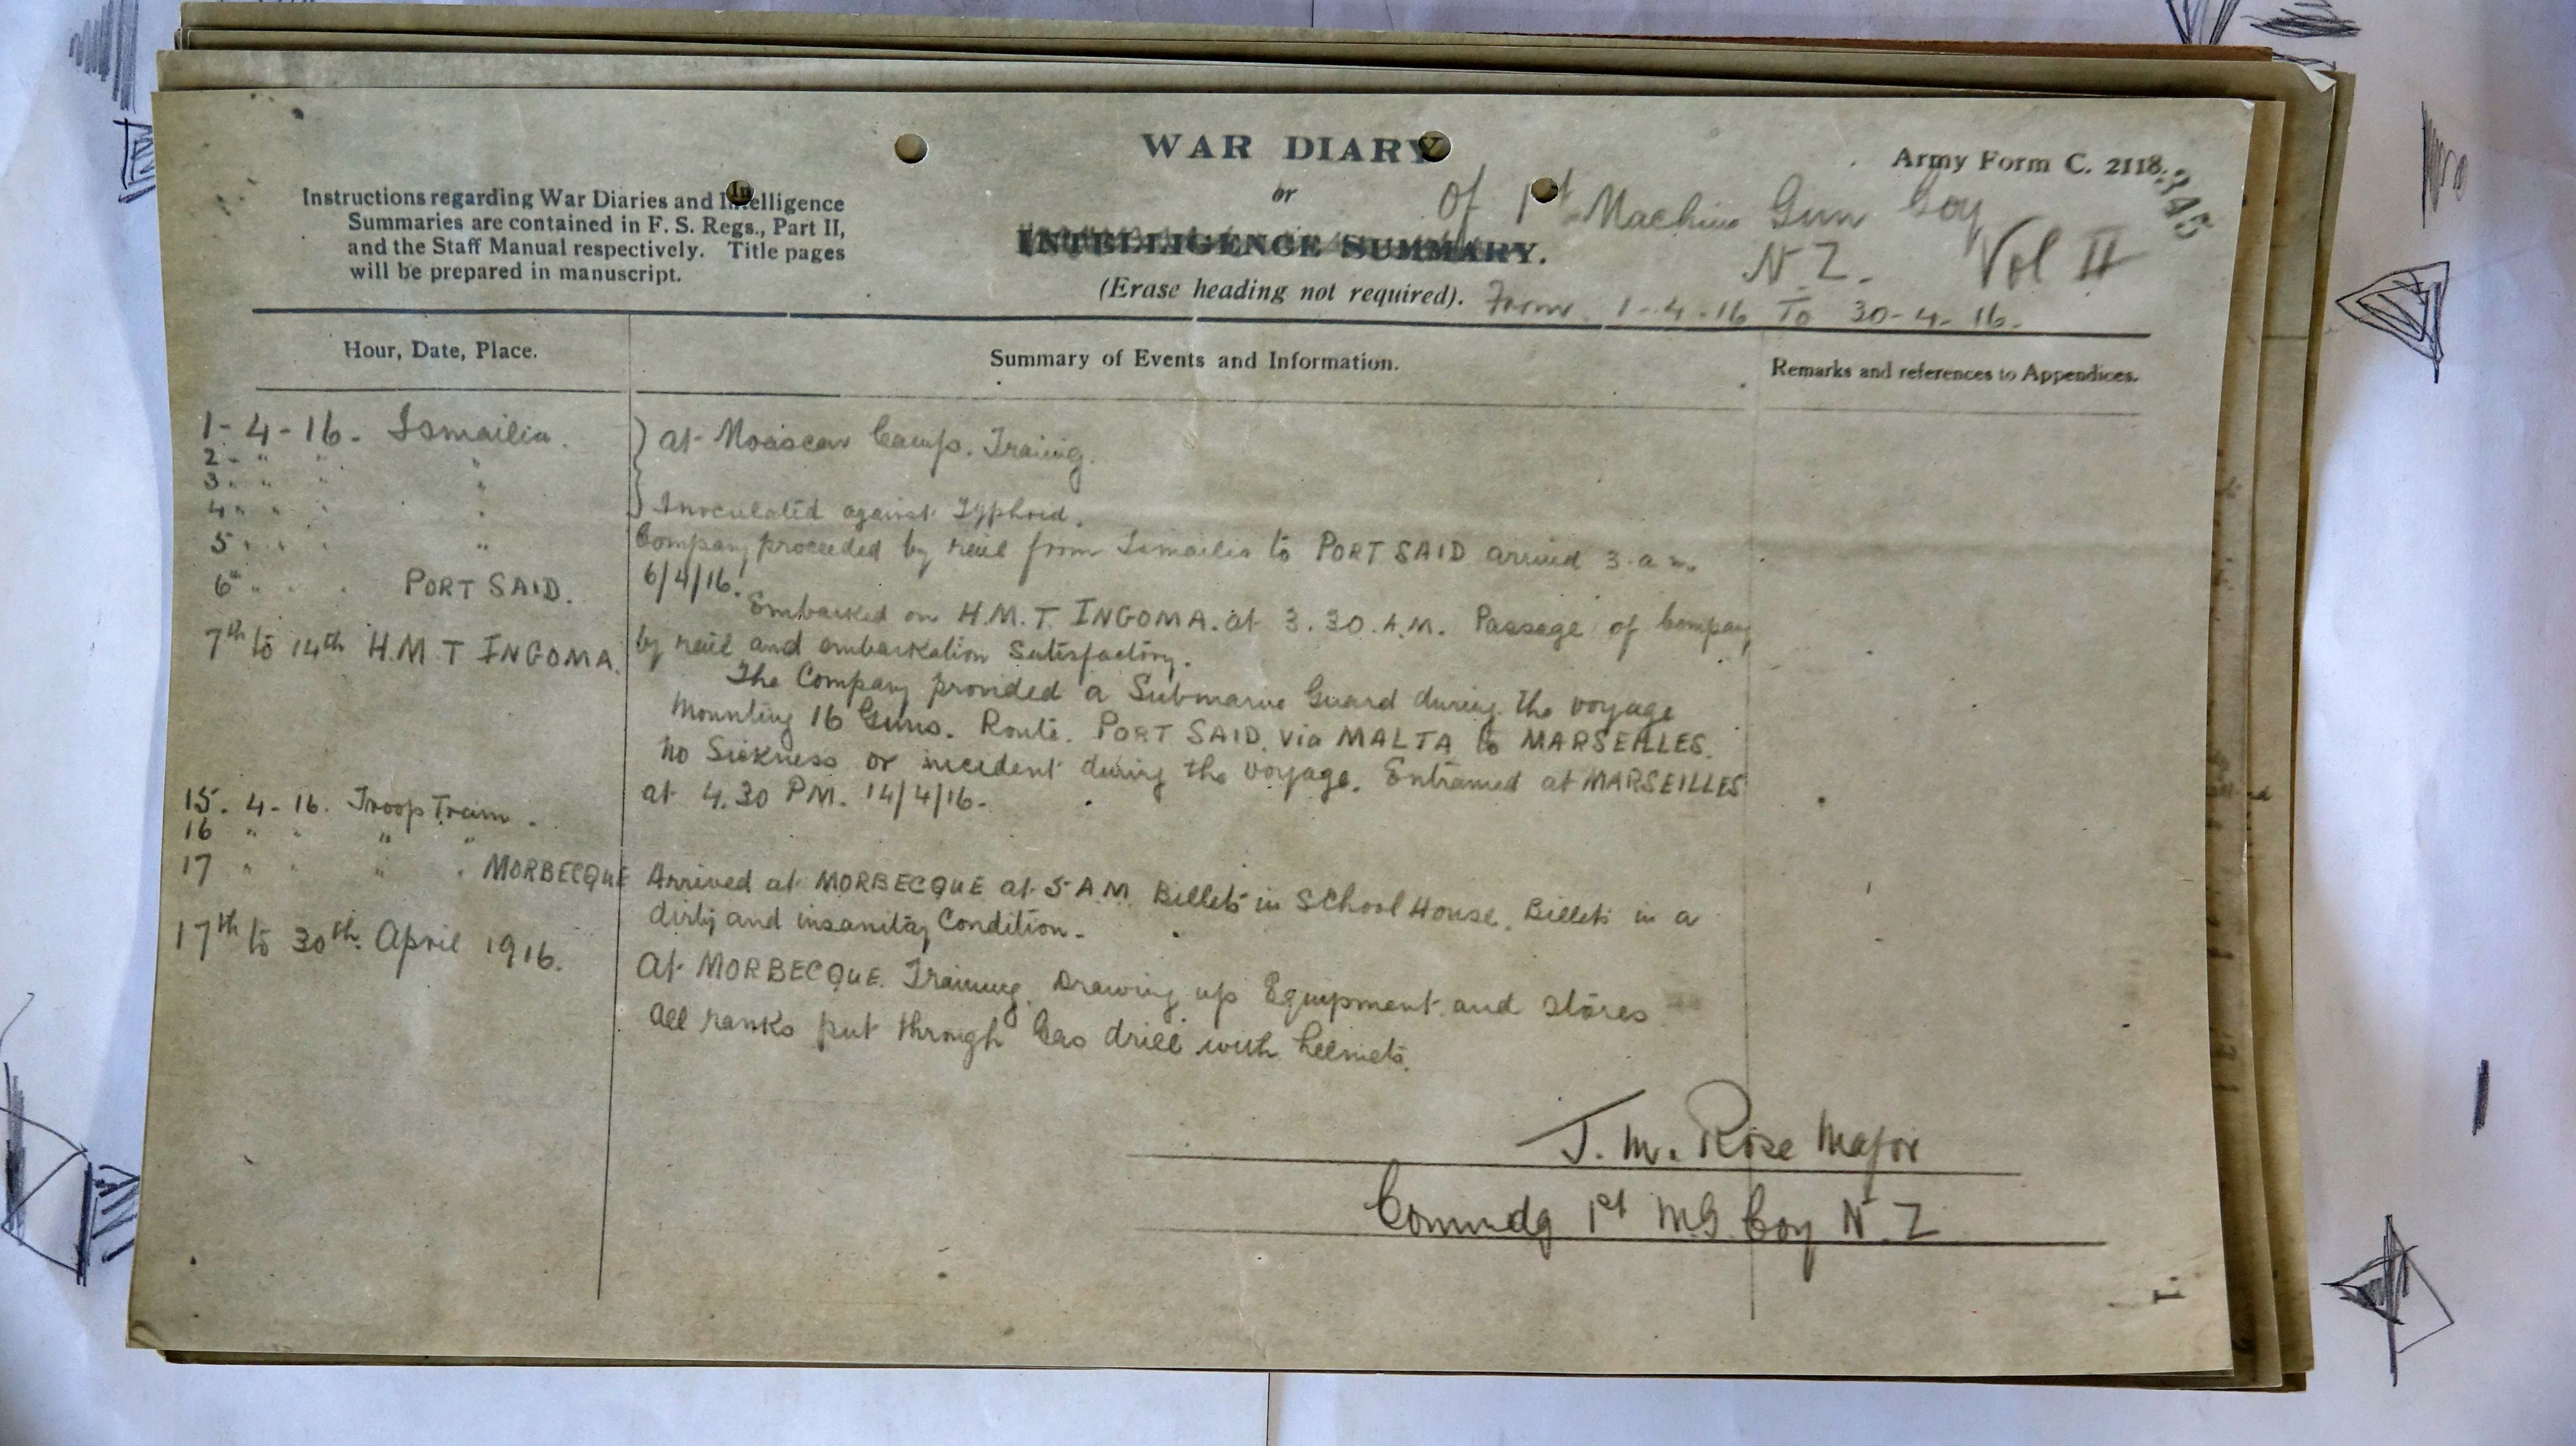 WAR DIARY
or
INTELLIGENCE SUMMARY.
(Erase heading not required).
Army Form C. 2118.
Instructions regarding War Diaries and Intelligence
Summaries are contained in F. S. Regs., Part II,
and the Staff Manual respectively. Title pages
will be prepared in manuscript.
of 1st Machine Gun Coy
N Z. Vol II
From 1-4-16 To 30-4-16.
Hour, Date, Place.
Summary of Events and Information.
Remarks and references to Appendices.
1-4-16. Ismailia.
at Moascar Camp. Training.
2 - " " "
3 " " "
4 " " "
Inoculated against Typhoid.
5 " " "
Company proceeded by rail from Ismailia to PORT SAID arrived 3 a m.
6th " " PORT SAID.
6/4/16.
Embarked on H.M.T. INGOMA. at 3.30.A.M. Passage of Company
7th to 14th H.M.T INGOMA.
by rail and embarkation Satisfactory.
The Company provided a Submarine Guard during the voyage
Mounting 16 Guns. Route. PORT SAID. via MALTA to MARSEILLES.
No Sickness or incident during the voyage. Entrained at MARSEILLES
at 4.30 PM. 14/4/16.
15.4-16. Troop Train.
16 " " " "
17 " " " " MORBECQUE
Arrived at MORBECQUE at 5 A.M. Billets in School House. Billets in a
dirty and insanitary Condition.
17th to 30th. April 1916.
At MORBECQUE. Training. Drawing up Equipment and stores
All ranks put through Gas drill with helmets.
J. M. Rose Major
Commdg 1st M.G. Coy N.Z